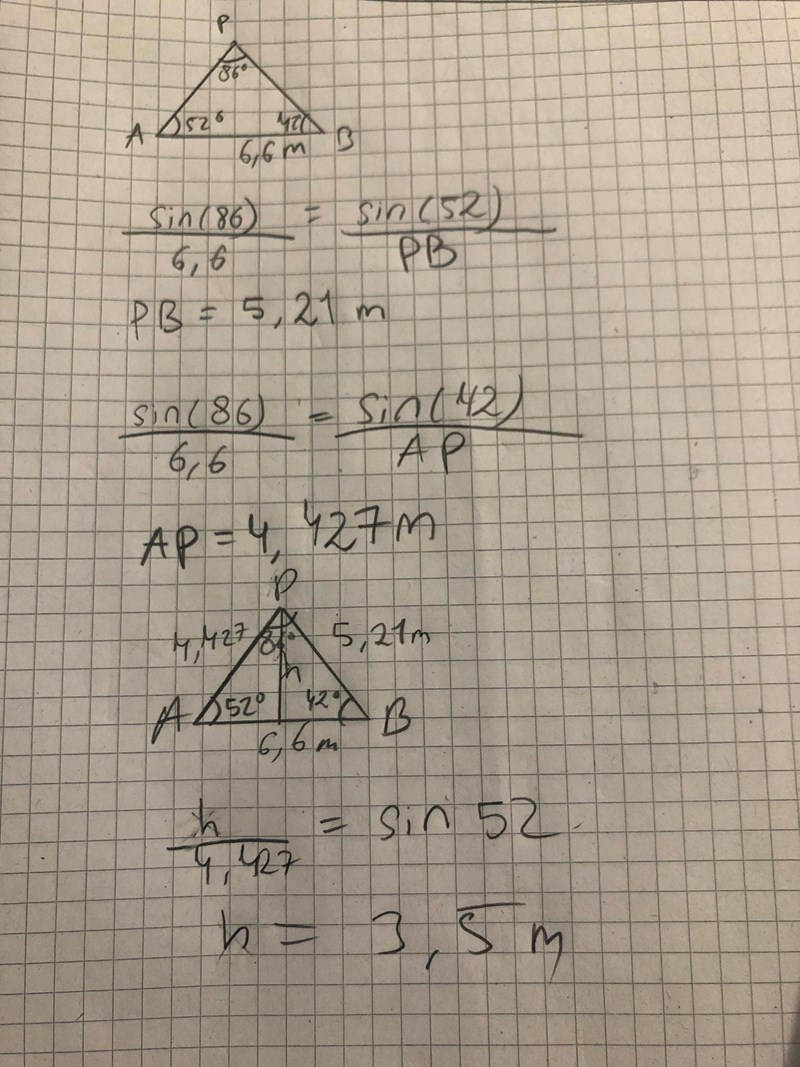 P
86°
A 52° 42 B
6,6 m
sin(86) = sin(52)
6,6 PB
PB = 5,21 m
sin(86) = sin(42)
6,6 AP
AP = 4,427 m
P
4,427 86° 5,21 m
h
A 52° 42° B
6,6 m
h = sin 52
4,427
h = 3,5 m